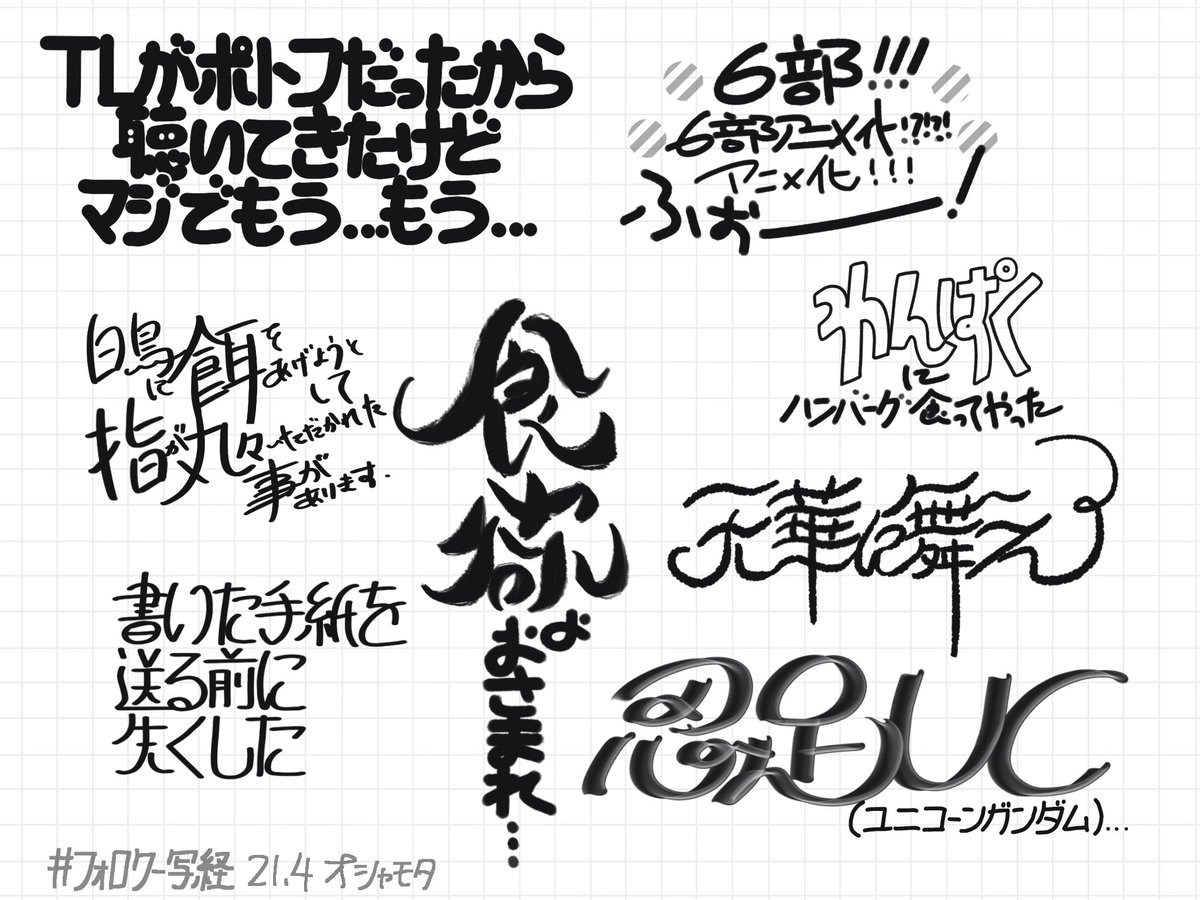 TLがポトフだったから
聴いてきたけど
マジでもう…もう…
6部!!!
6部アニメ化!?!?!
アニメ化!!!
ふぉー!
白鳥に餌をあげようと
して
指が丸々いただかれた
事が
あります.
食欲よ
おさまれ…
わんぱく
に
ハンバーグ食ってやった
華に舞え
書いた手紙を
送る前に
失くした
忍足UC
(ユニコーンガンダム)…
#フォロワー写経 21.4 オシャモタ